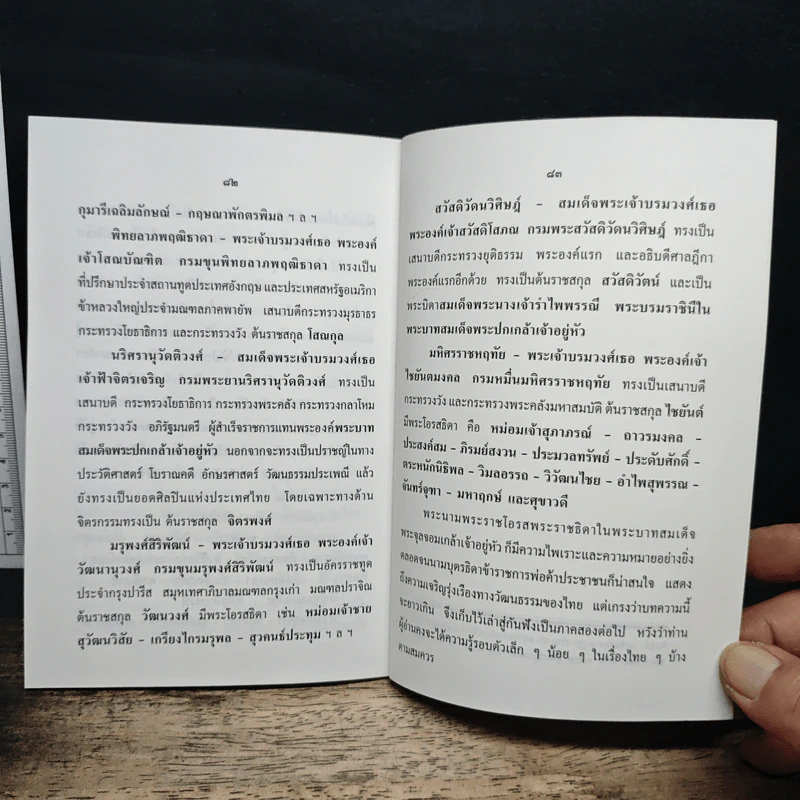 ๘๒
กุมารีเฉลิมลักษณ์ - กฤษณาพักตรพิมล ฯ ล ฯ
พิทยลาภพฤฒิธาดา - พระเจ้าบรมวงศ์เธอ พระองค์
เจ้าโสณบัณฑิต กรมขุนพิทยลาภพฤฒิธาดา ทรงเป็น
ที่ปรึกษาประจำสถานทูตประเทศอังกฤษ และประเทศสหรัฐอเมริกา
ข้าหลวงใหญ่ประจำมณฑลภาคพายัพ เสนาบดีกระทรวงมุรธาธร
กระทรวงโยธาธิการ และกระทรวงวัง ต้นราชสกุล โสณกุล
นริศรานุวัดติวงศ์ - สมเด็จพระเจ้าบรมวงศ์เธอ
เจ้าฟ้าจิตรเจริญ กรมพระยานริศรานุวัดติวงศ์ ทรงเป็น
เสนาบดี กระทรวงโยธาธิการ กระทรวงพระคลัง กระทรวงกลาโหม
กระทรวงวัง อภิรัฐมนตรี ผู้สำเร็จราชการแทนพระองค์พระบาท
สมเด็จพระปกเกล้าเจ้าอยู่หัว นอกจากจะทรงเป็นปราชญ์ในทาง
ประวัติศาสตร์ โบราณคดี อักษรศาสตร์ วัฒนธรรมประเพณี แล้ว
ยังทรงเป็นยอดศิลปินแห่งประเทศไทย โดยเฉพาะทางด้าน
จิตรกรรมทรงเป็น ต้นราชสกุล จิตรพงศ์
มรุพงศ์สิริพัฒน์ - พระเจ้าบรมวงศ์เธอ พระองค์เจ้า
วัฒนานุวงศ์ กรมขุนมรุพงศ์สิริพัฒน์ ทรงเป็นอัครราชทูต
ประจำกรุงปารีส สมุหเทศาภิบาลมณฑลกรุงเก่า มณฑลปราจิณ
ต้นราชสกุล วัฒนวงศ์ มีพระโอรสธิดา เช่น หม่อมเจ้าชาย
สุวัฒนวิสัย - เกรียงไกรมรุพล - สุวคนธ์ประทุม ฯ ล ฯ
๘๓
สวัสดิวัดนวิศิษฎ์ - สมเด็จพระเจ้าบรมวงศ์เธอ
พระองค์เจ้าสวัสดิโสภณ กรมพระสวัสดิวัดนวิศิษฎ์ ทรงเป็น
เสนาบดีกระทรวงยุติธรรม พระองค์แรก และอธิบดีศาลฎีกา
พระองค์แรกอีกด้วย ทรงเป็นต้นราชสกุล สวัสดิวัตน์ และเป็น
พระบิดาสมเด็จพระนางเจ้ารำไพพรรณี พระบรมราชินีใน
พระบาทสมเด็จพระปกเกล้าเจ้าอยู่หัว
มหิศรราชหฤทัย - พระเจ้าบรมวงศ์เธอ พระองค์เจ้า
ไชยันตมงคล กรมหมื่นมหิศรราชหฤทัย ทรงเป็นเสนาบดี
กระทรวงวัง และกระทรวงพระคลังมหาสมบัติ ต้นราชสกุล ไชยันต์
มีพระโอรสธิดา คือ หม่อมเจ้าสุภาภรณ์ - ถาวรมงคล -
ประสงค์สม - ภิรมย์สงวน - ประมวลทรัพย์ - ประดับศักดิ์ -
ตระหนักนิธิพล - วิมลอรรถ - วิวัฒนไชย - อำไพสุพรรณ -
จันทร์จุฑา - มหาฤกษ์ และศุขาวดี
พระนามพระราชโอรสพระราชธิดาในพระบาทสมเด็จ
พระจุลจอมเกล้าเจ้าอยู่หัว ก็มีความไพเราะและความหมายอย่างยิ่ง
ตลอดจนนามบุตรธิดาข้าราชการพ่อค้าประชาชนก็น่าสนใจ แสดง
ถึงความเจริญรุ่งเรืองทางวัฒนธรรมของไทย แต่เกรงว่าบทความนี้
จะยาวเกิน จึงเก็บไว้เล่าสู่กันฟังเป็นภาคสองต่อไป หวังว่าท่าน
ผู้อ่านคงจะได้ความรู้รอบตัวเล็ก ๆ น้อย ๆ ในเรื่องไทย ๆ บ้าง
ตามสมควร